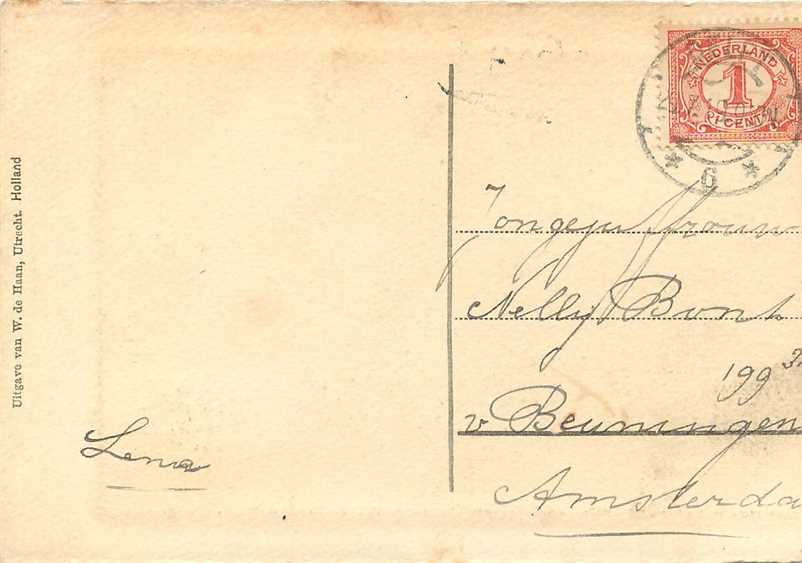 Uitgave van W. de Haan, Utrecht. Holland
NEDERLAND
1
CENT
6
Jongejuffrouw
Nelly Bont
199
v Beuningen
Amsterda
Lena